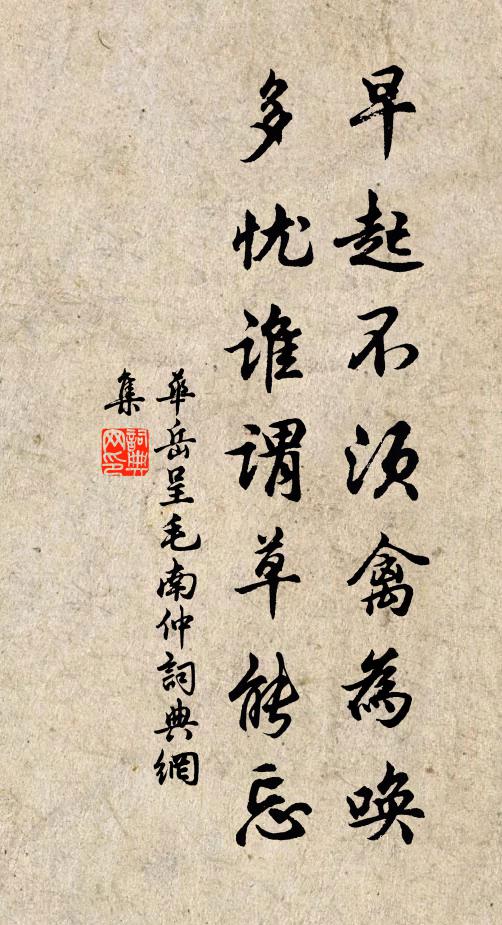 早起不须禽為唤
多忧谁谓草能忘
華岳呈毛南仲詞典網
集
詞典
网印